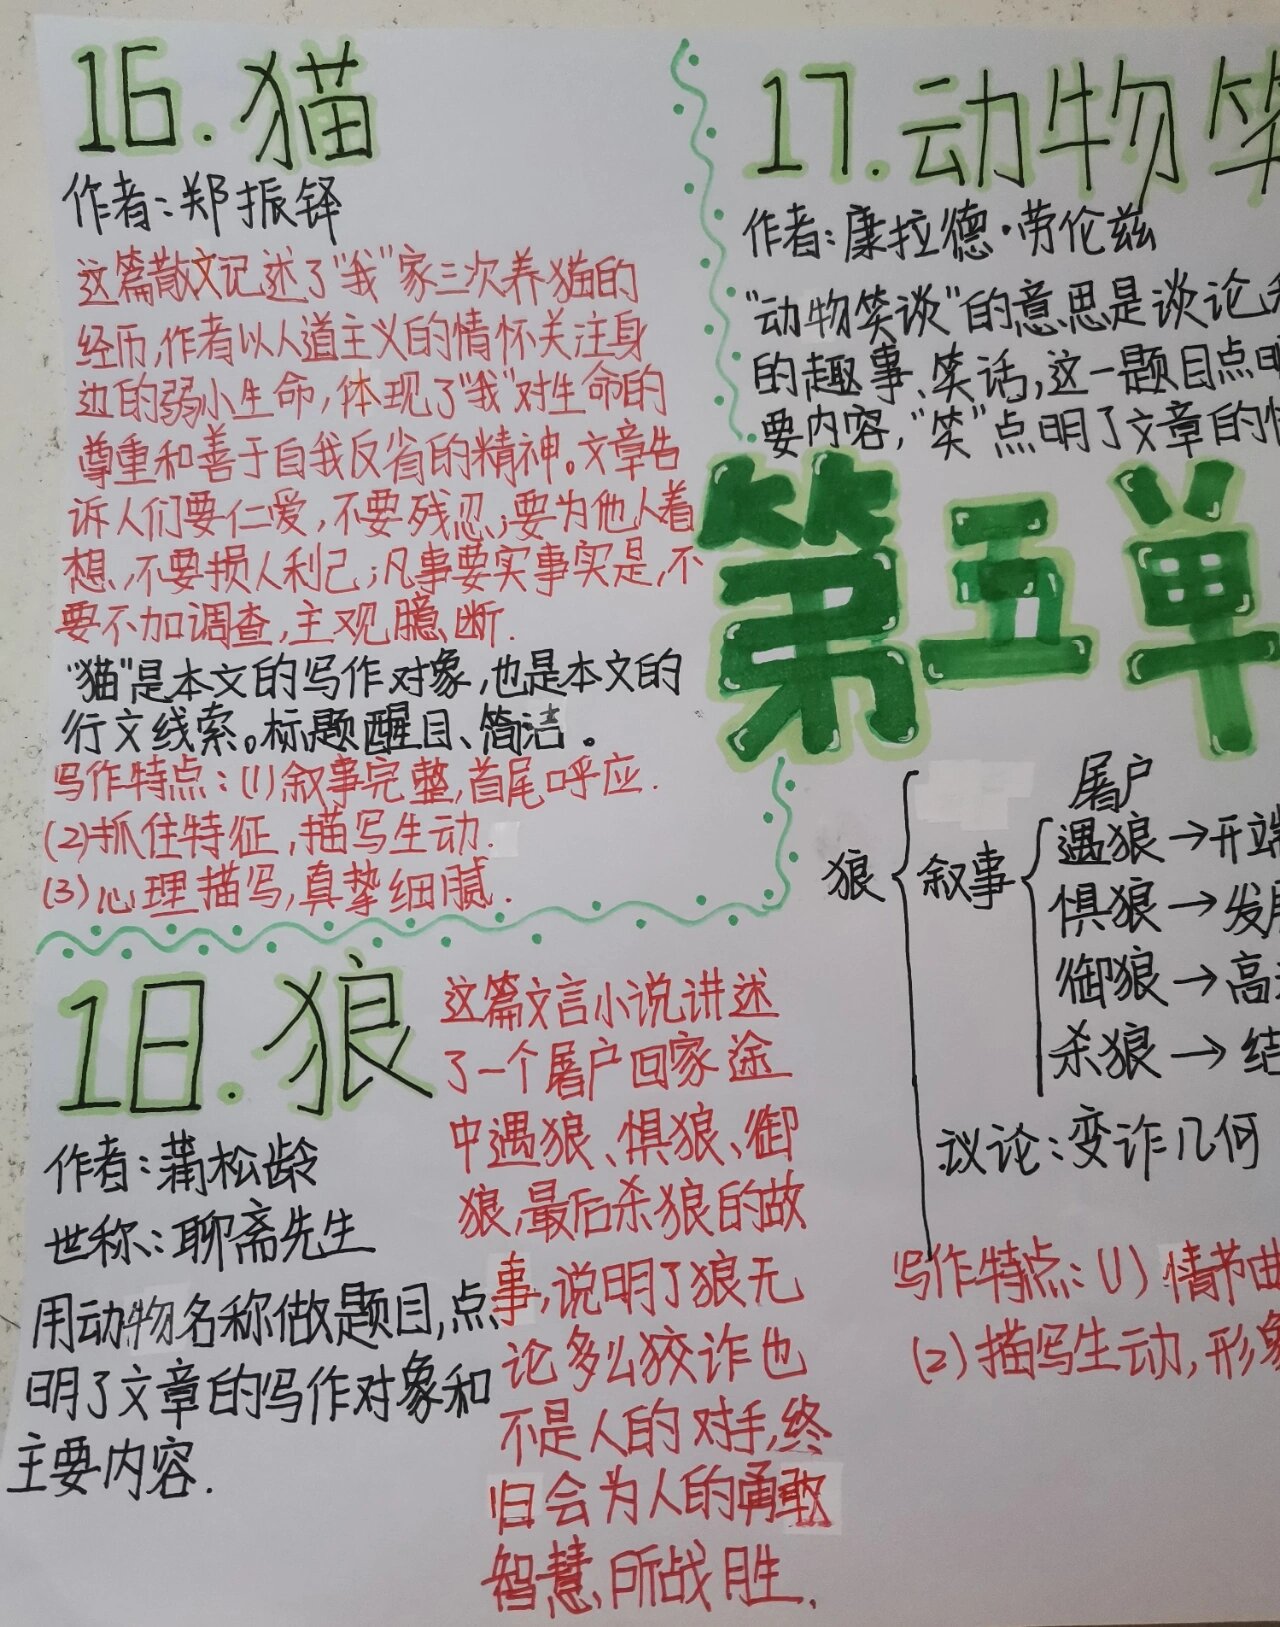 16.猫
作者:郑振铎
这篇散文记述了"我"家三次养猫的
经历,作者以人道主义的情怀关注身
边的弱小生命,体现了"我"对生命的
尊重和善于自我反省的精神。文章告
诉人们要仁爱,不要残忍;要为他人着
想,不要损人利己;凡事要实事实是,不
要不加调查,主观臆断.
"猫"是本文的写作对象,也是本文的
行文线索。标题醒目、简洁。
写作特点:(1)叙事完整,首尾呼应.
(2)抓住特征,描写生动.
(3)心理描写,真挚细腻.
17.动物笑
作者:康拉德·劳伦兹
"动物笑谈"的意思是谈论
的趣事、笑话,这一题目点明
要内容,"笑"点明了文章的
第五单
18.狼
作者:蒲松龄
世称:聊斋先生
用动物名称做题目,点
明了文章的写作对象和
主要内容.
这篇文言小说讲述
了一个屠户回家途
中遇狼、惧狼、御
狼,最后杀狼的故
事,说明了狼无
论多么狡诈也
不是人的对手,终
归会为人的勇敢
智慧,所战胜.
狼
叙事
屠户
遇狼→开端
惧狼→发展
御狼→高
杀狼→结
议论:变诈几何
写作特点:(1)情节曲
(2)描写生动,形象